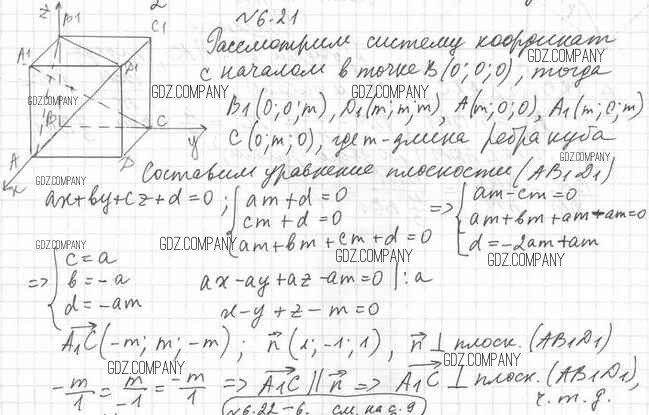 №6.21
z B1 C1
Рассмотрим систему координат
A1 D1
с началом в точке B(0;0;0), тогда
B1(0;0;m), D1(m;m;m), A(m;0;0), A1(m;0;m)
C y
C(0;m;0), где m-длина ребра куба
A D
x
Составим уравнение плоскости (AB1D1)
ax+by+cz+d=0; { am+d=0 => { am-cm=0
cm+d=0 am+bm+am-am=0
am+bm+cm+d=0 d=-2am+am
=> { c=a
b=-a ax-ay+az-am=0 |:a
d=-am x-y+z-m=0
A1C(-m; m; -m); n(1;-1;1), n ⊥ плоск. (AB1D1)
-m/1 = m/-1 = -m/1 => A1C || n => A1C ⊥ плоск. (AB1D1),
ч.т.д.
№6.22-6. см. на с. 9
GDZ.COMPANY
GDZ.COMPANY
GDZ.COMPANY
GDZ.COMPANY
GDZ.COMPANY
GDZ.COMPANY
GDZ.COMPANY
GDZ.COMPANY
GDZ.COMPANY
GDZ.COMPANY
GDZ.COMPANY
GDZ.COMPANY
GDZ.COMPANY